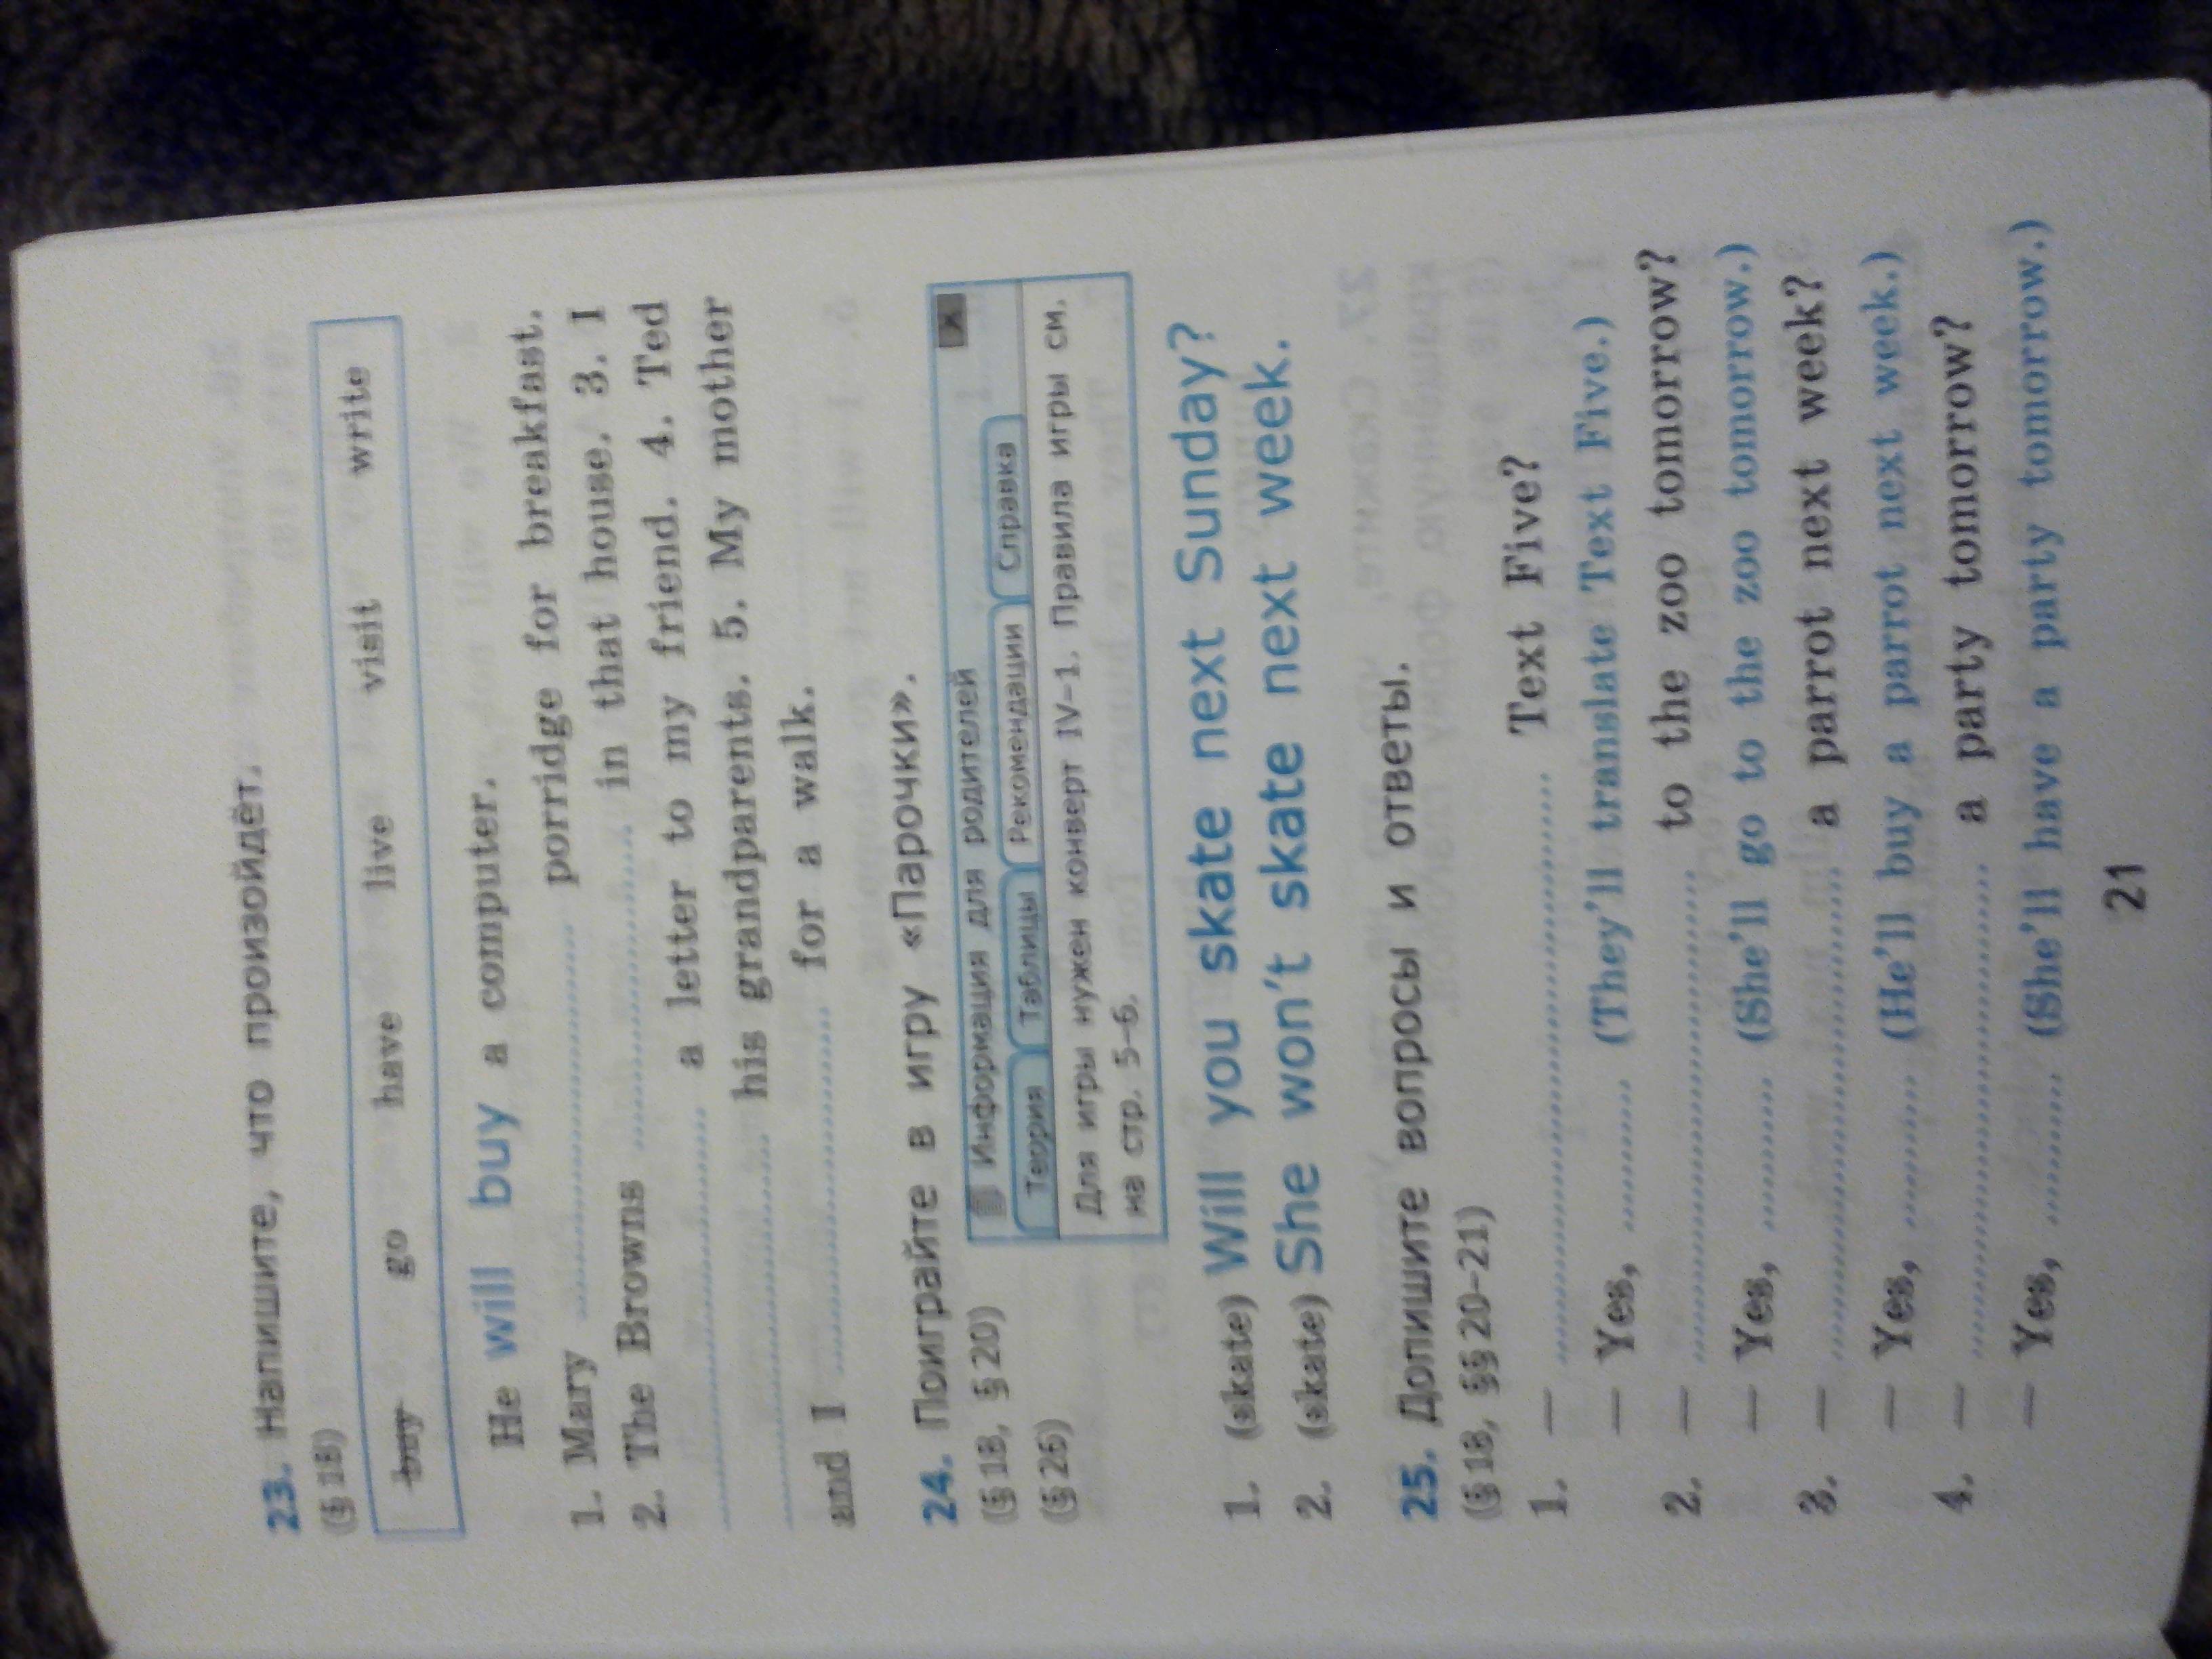 23. Напишите, что произойдёт.
(§ 18)
buy go have live visit write
He will buy a computer.
1. Mary ........ porridge for breakfast.
2. The Browns ........ in that house. 3. I
........ a letter to my friend. 4. Ted
........ his grandparents. 5. My mother
and I ........ for a walk.
24. Поиграйте в игру «Парочки».
(§ 18, § 20)
(§ 26)
Информация для родителей x
Теория Таблицы Рекомендации Справка
Для игры нужен конверт IV–1. Правила игры см.
на стр. 5–6.
1. (skate) Will you skate next Sunday?
2. (skate) She won't skate next week.
25. Допишите вопросы и ответы.
(§ 18, §§ 20–21)
1. — ........ Text Five?
— Yes, ........ (They'll translate Text Five.)
2. — ........ to the zoo tomorrow?
— Yes, ........ (She'll go to the zoo tomorrow.)
3. — ........ a parrot next week?
— Yes, ........ (He'll buy a parrot next week.)
4. — ........ a party tomorrow?
— Yes, ........ (She'll have a party tomorrow.)
21